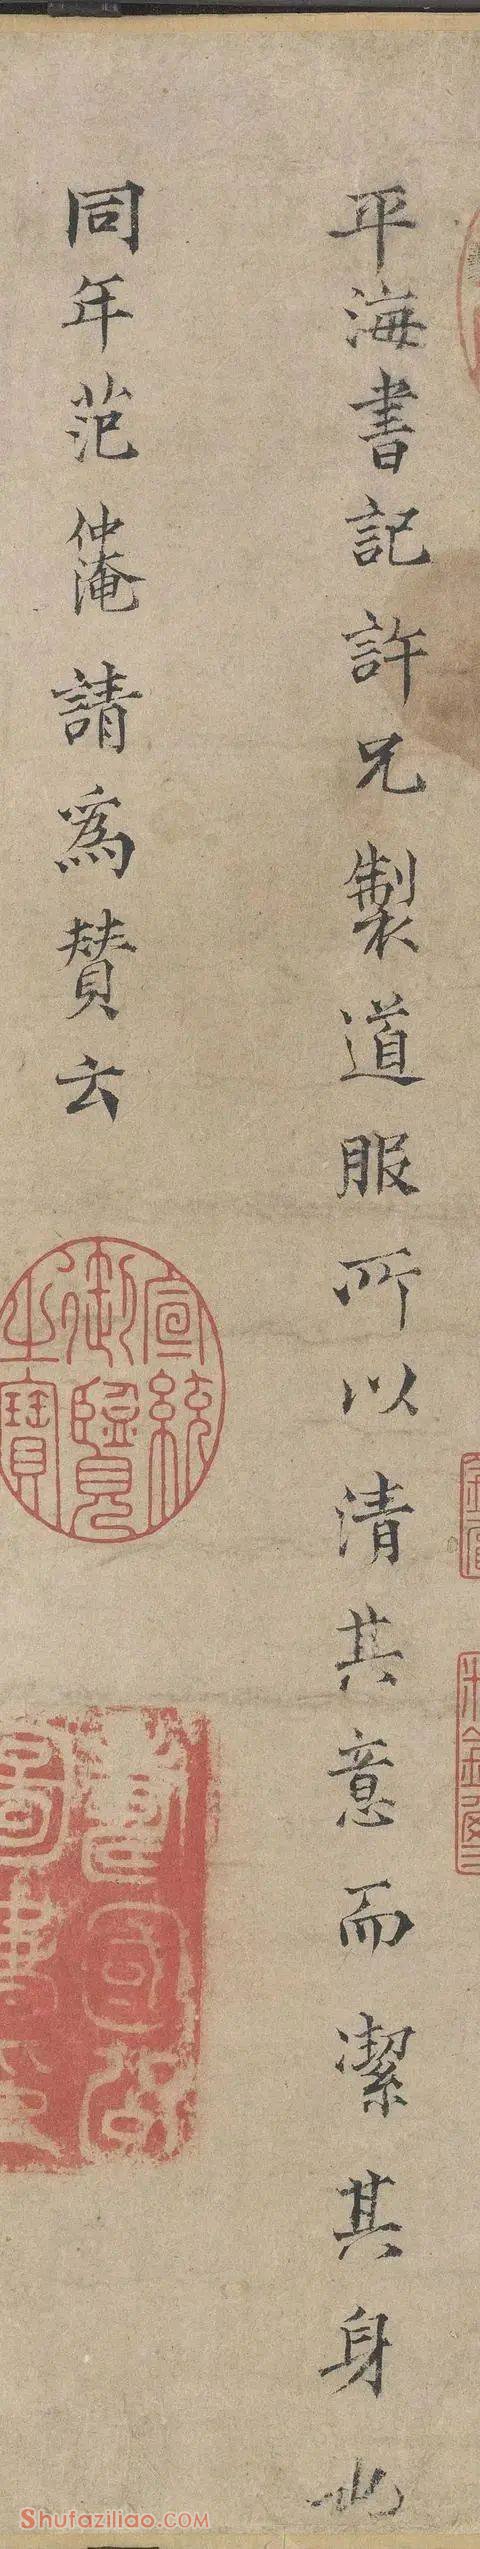 平海書記許兄製道服所以清其意而潔其身也
同年范仲淹請為贊云
宣統御覽之寶
Shufaziliao.COM